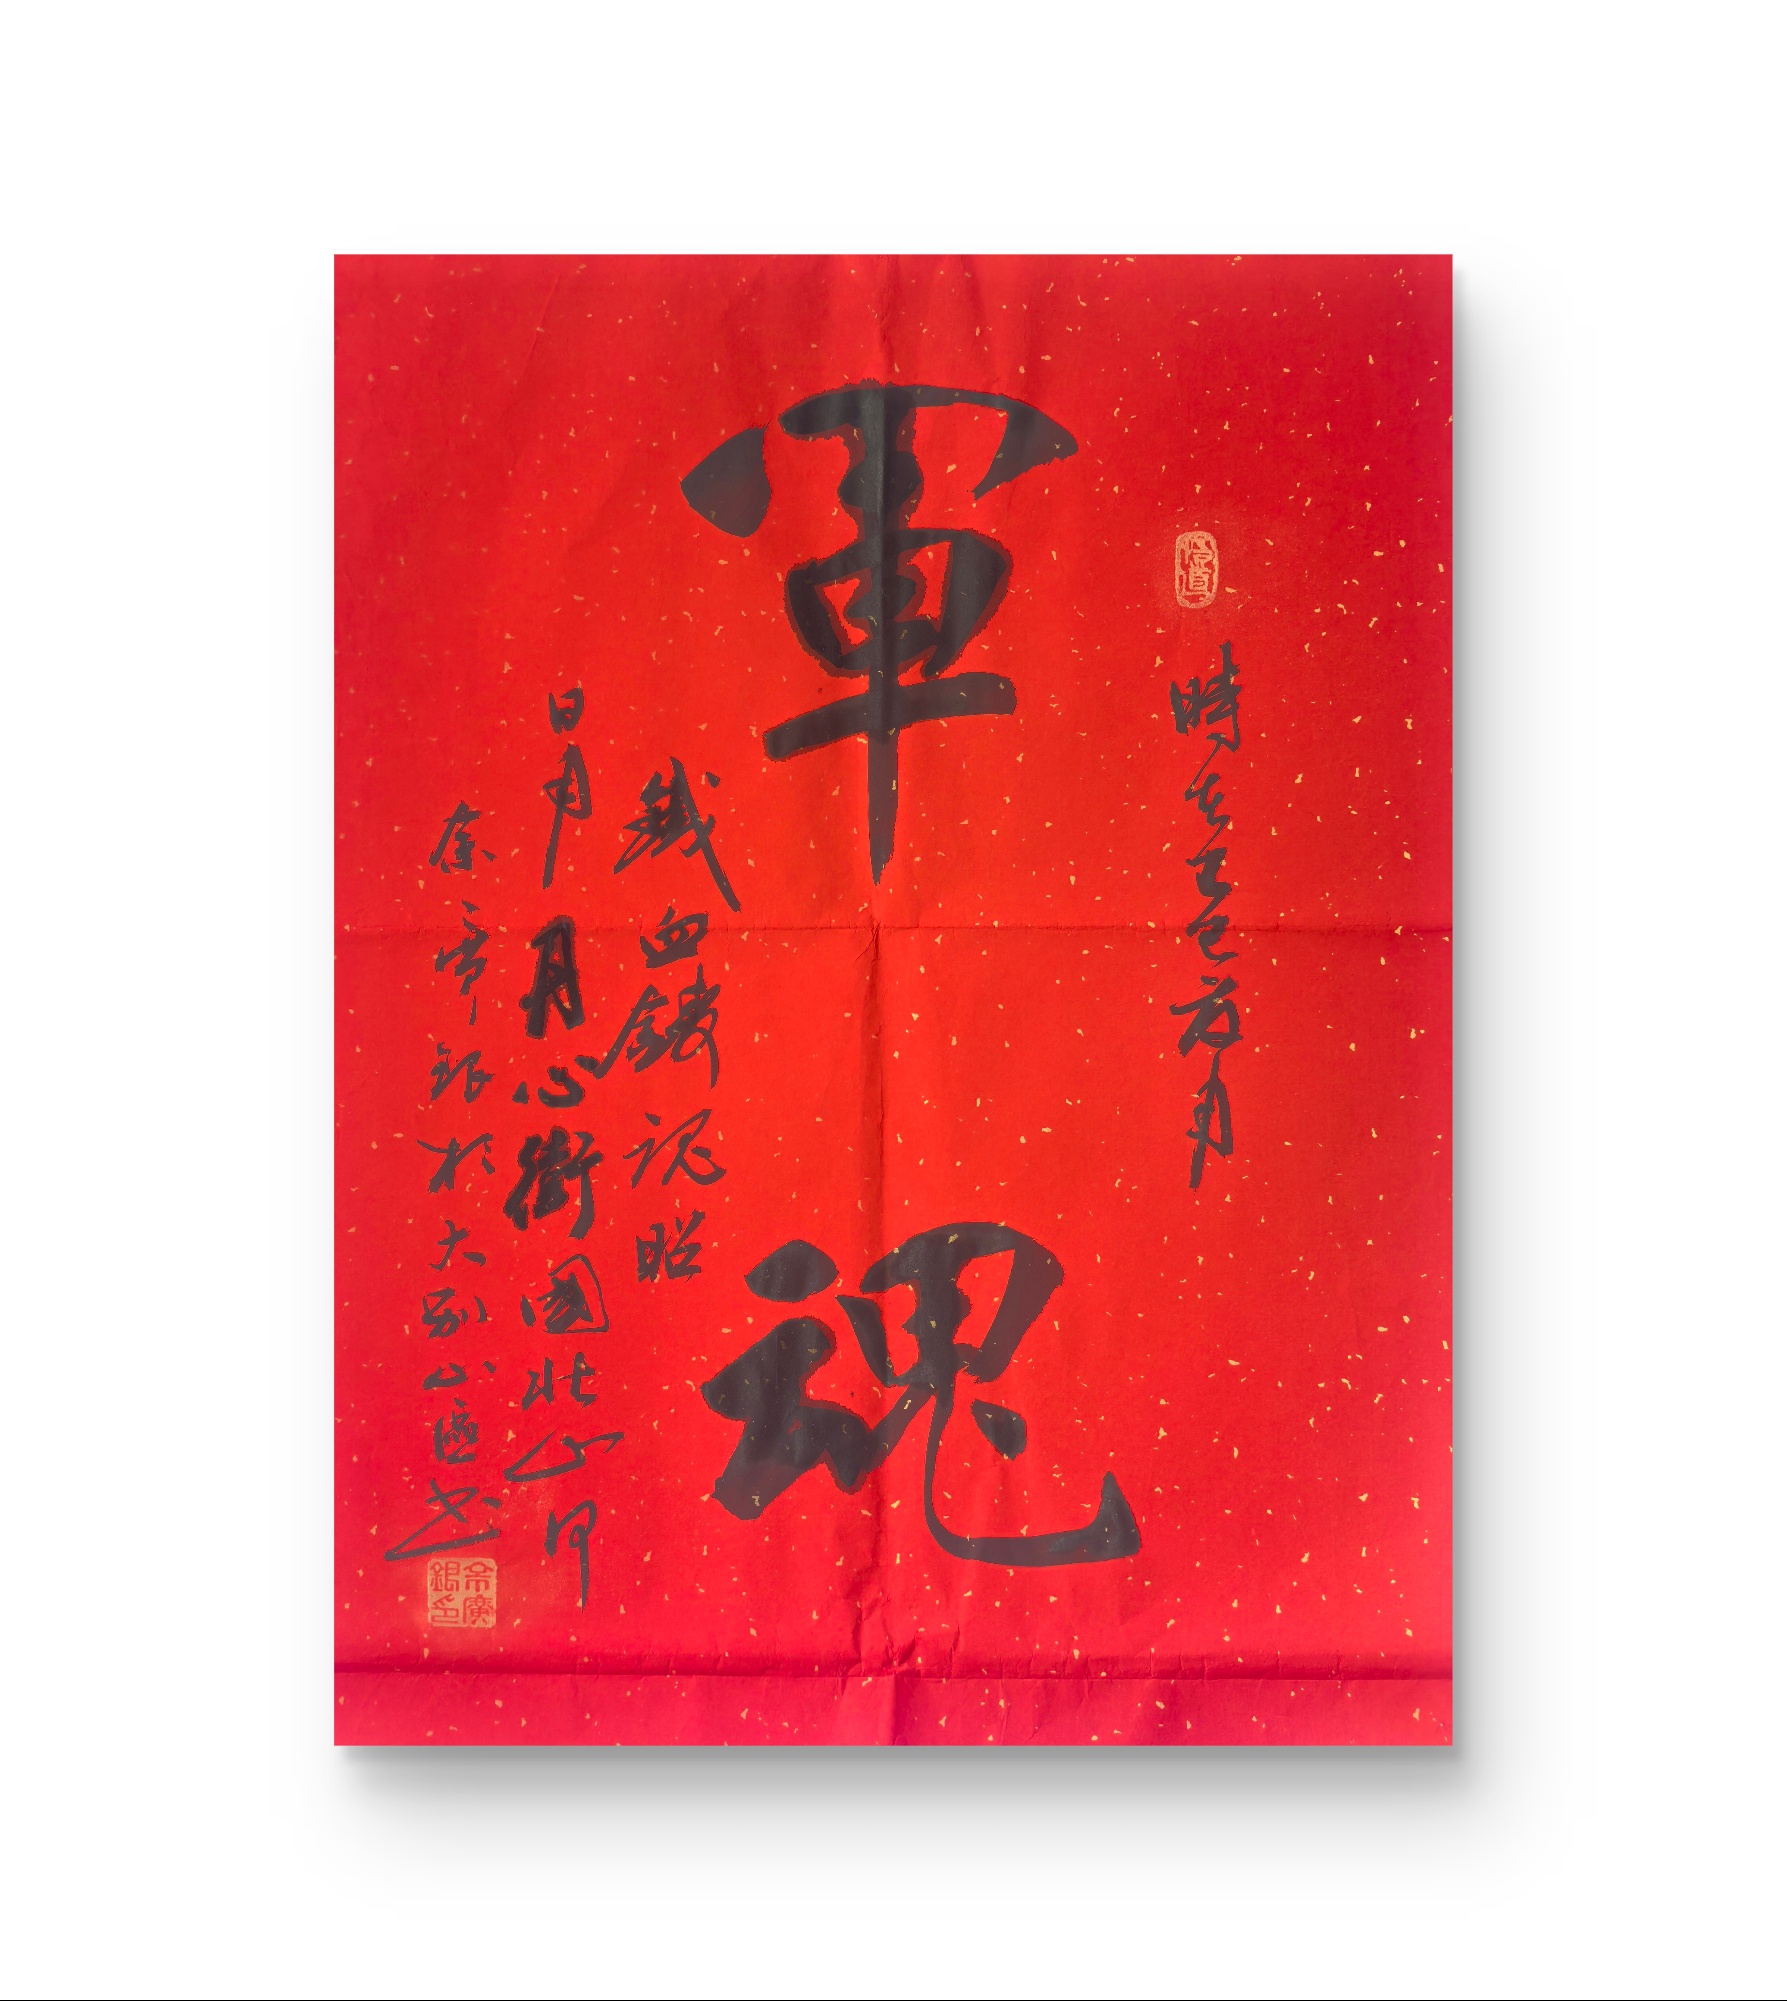 時在乙巳荷月
軍魂
鐵血鑄魂昭
日月 丹心衛國壯山河
余廣銀於大別山區書
余廣銀印